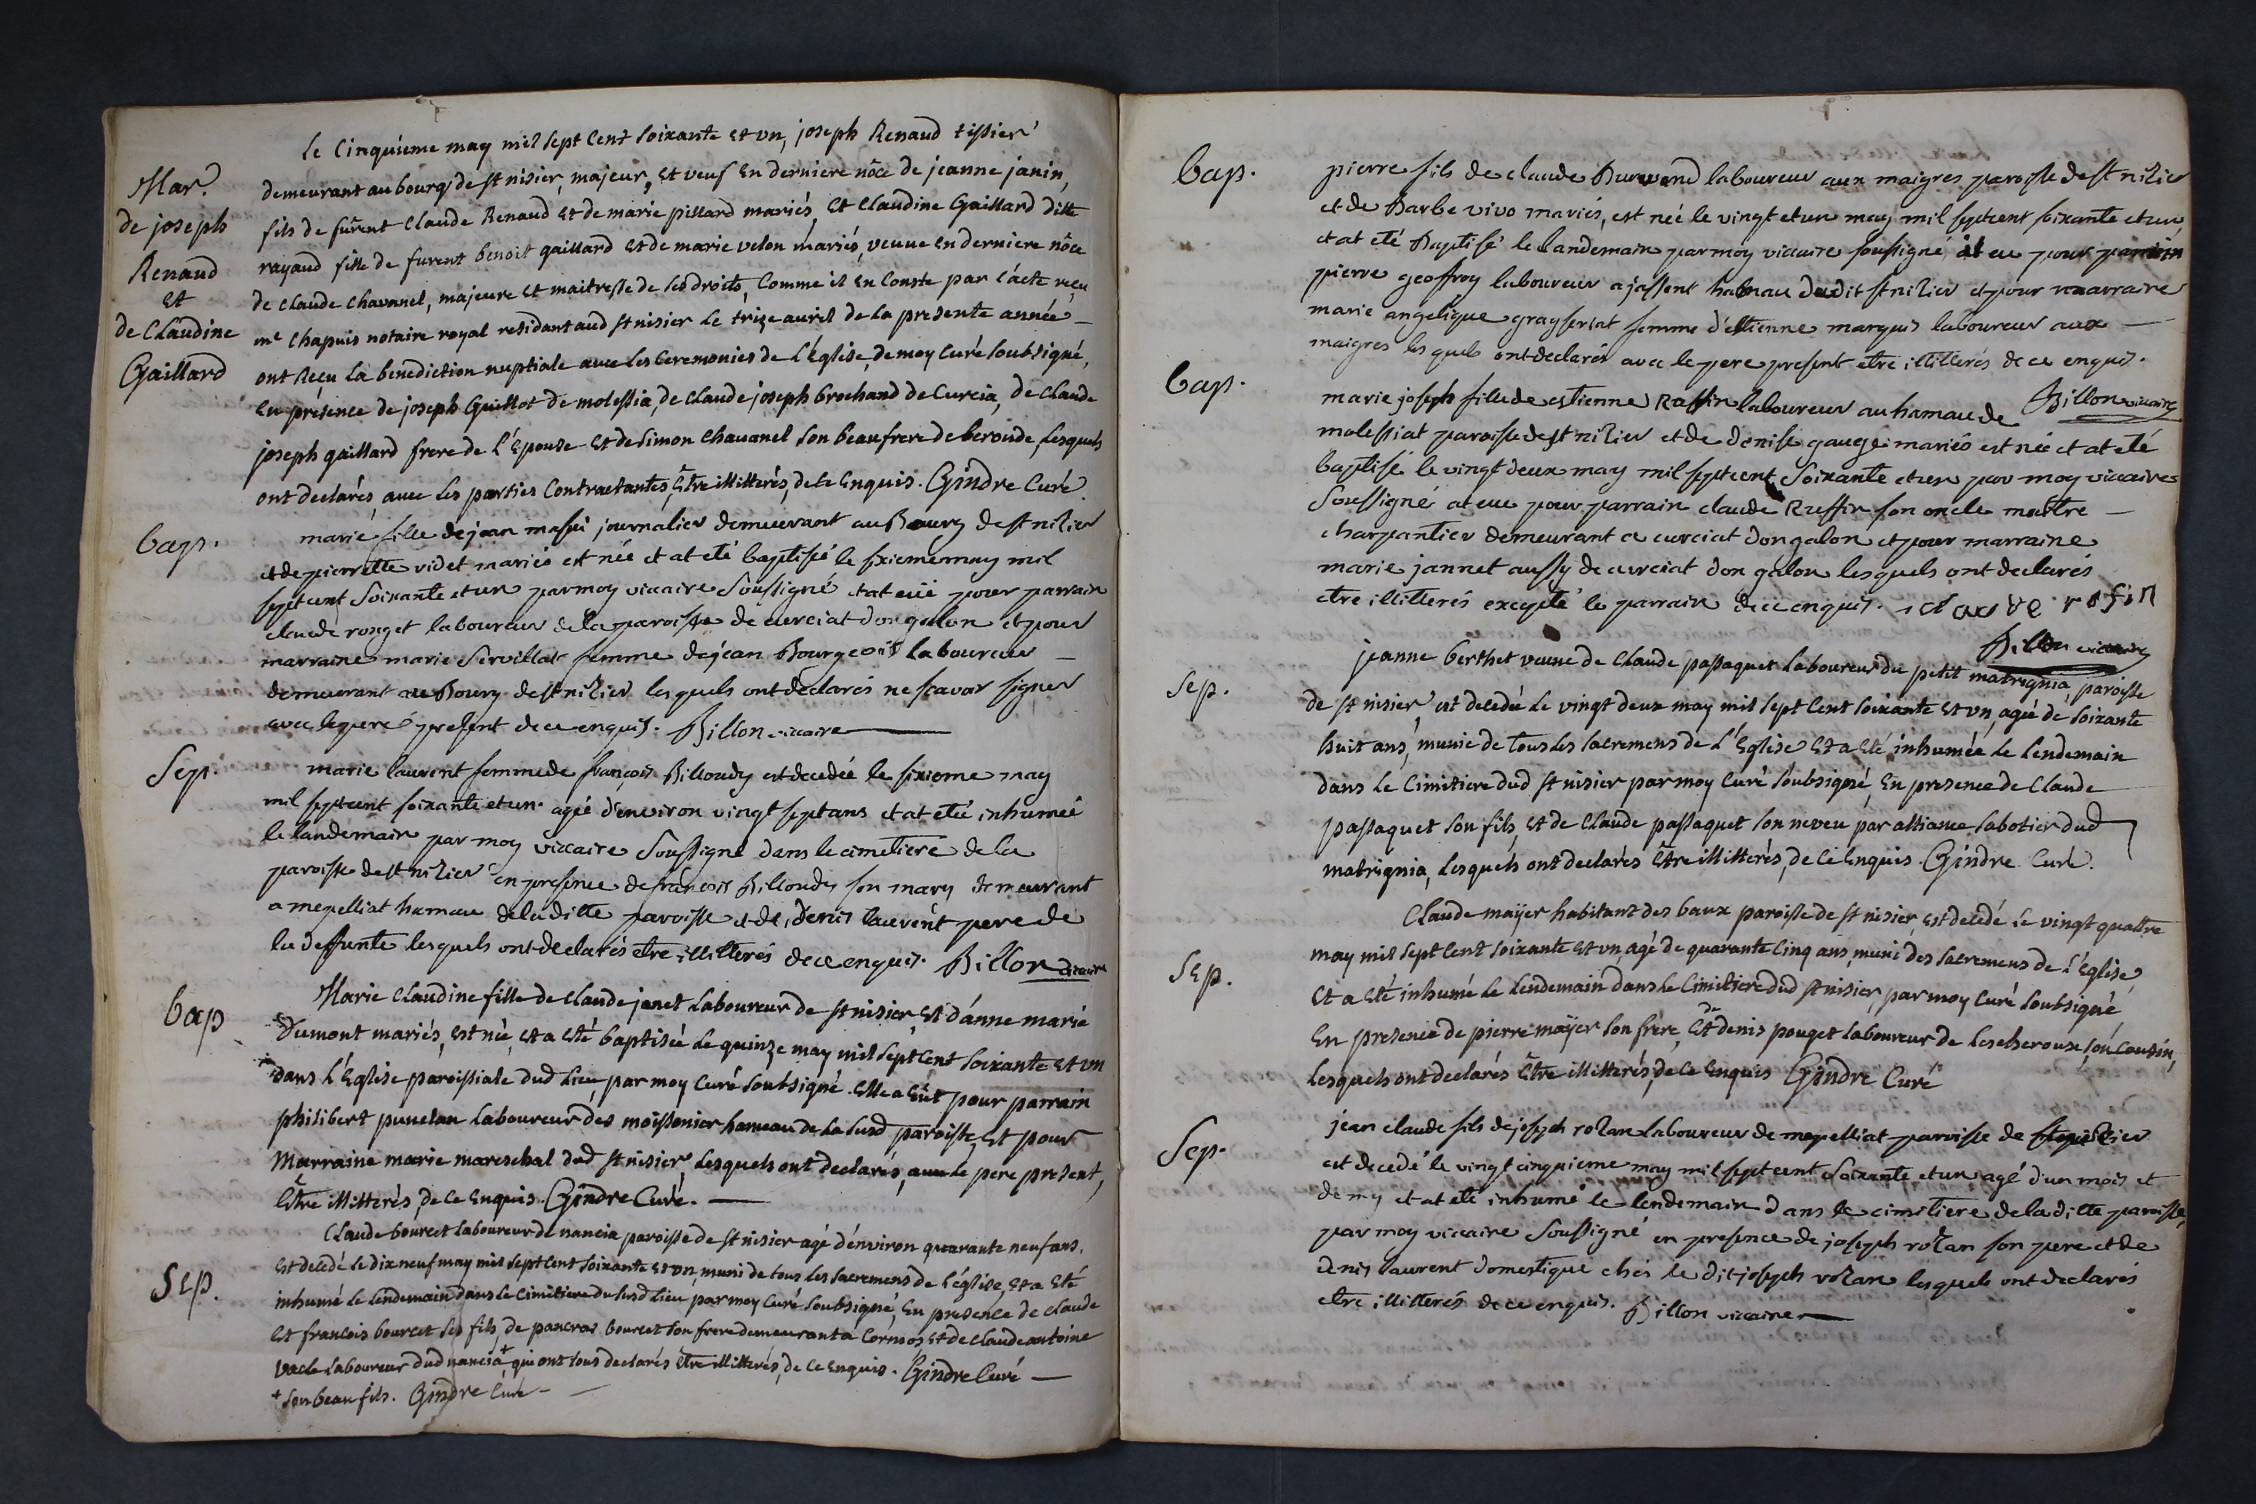 le Cinquieme may mil sept Cent soixante et un, joseph Renaud tissier
Mar.
de joseph
Renaud
et
de Claudine
Gaillard
demeurant au bourg de st nisier, majeur, et veuf en derniere nôce de jeanne janin,
fils de fûrent Claude Renaud et de marie pillard mariés, et Claudine Gaillard ditte
rayaud fille de furent benoit gaillard et de marie velon mariés, veuve en derniere nôce
de Claude Chavanel, majeure et maitresse de ses droits, Comme il en Conste par l'acte reçu
me Chapuis notaire royal residant aud st nisier le trize avril de la presente année
ont Reçu la benediction nuptiale avec les Ceremonies de L'Eglise, de moy Curé soubsigné,
en presence de joseph Guillot de molessia, de Claude joseph brochand de Curcia, de Claude
joseph gaillard frere de l'Epouse et de simon Chavanel son beaufrere de beronde, Lesquels
ont declarés, avec les parties Contractantes, être illitterés, de Ce enquis. Gindre Curé
bap.
marie fille de jean massi journalier demeurant au Bourg de st nizier
et de pierrette videt mariés est née et at eté baptisé le sixieme may mil
sept cent soixante et un par moy viccaire soussigné et at eüe pour parrain
claude ronget laboureur de la paroisse de curciat dongalon et pour
marraine marie Servillat femme de jean Bourgeois laboureur
demeurant au Bourg de st nizier lesquels ont declarés ne scavoir signer
avec le pere present de ce enquis. Billon viccaire
Sep.
marie laurent femme de françois Billoudy est decedée le sixieme may
mil sept cent soixante et un agée d'environ vingt sept ans et at etée inhumée
le landemain par moy viccaire soussigné dans le cimetiere de la
paroisse de st nizier en presence de françois Billoudy son mary demeurant
a mepelliat hameau de la ditte paroisse et de denis laurent pere de
la deffunte lesquels ont declarés etre illitterés de ce enquis. Billon viccaire
bap
Marie Claudine fille de Claude janet Laboureur de st nisier, et d'anne marie
Dumont mariés, est née, et a eté baptisée le quinze may mil sept Cent soixante et un
dans l'Eglise paroissiale dud Lieu, par moy Curé soubsigné. elle a eüt pour parrain
philibert punelan Laboureur des moissonier hameau de la susd paroisse, et pour
Marraine marie mareschal dud st nisier Lesquels ont declarés, avec le pere present,
être illitterés, de Ce enquis. Gindre Curé.
Sep.
Claude bourcet laboureur de nancia paroisse de st nisier agé d'environ quarante neuf ans,
est decedé le dix neuf may mil sept Cent soixante et un, muni de tous les sacremens de l'église, et a eté
inhumé le lendemain dans le Cimitiere du susd Lieu par moy Curé soubsigné, en presence de Claude
et francois bourcet ses fils, de pancras bourcet son frere demeurant a Cormos, et de Claude antoine
vacle Laboureur dud nancia + qui ont tous declarés être illitterés, de Ce enquis. Gindre Curé
+ son beau fils. Gindre Curé
bap.
pierre fils de claude Durwand laboureur aux maigres paroisse de st nizier
et de Barbe vivo mariés, est née le vingt et un may mil sept cent soixante et un
et at eté Baptisé le landemain par moy viccaire soussigné at eu pour parrain
pierre geoffroy laboureur a jassent hameau dudit st nizier et pour marraine
marie angelique grayseriat femme d'estienne marguis laboureur aux
maigres lesquels ont declarés avec le pere present etre illitterés de ce enquis.
Billon viccaire
bap.
marie joseph fille de estienne Raffin laboureur au hamau de
molessiat paroisse de st nizier et de denise gauge mariés est née et at eté
baptisé le vingt deux may mil sept cent soixante et un par moy viccaire
soussigné at eue pour parrain claude Ruffin son oncle maitre
charpantier demeurant a curciat dongalon et pour marraine
marie jannet aussy de curciat dongalon lesquels ont declarés
etre illitterés excepté le parrain de ce enquis. claude rofin
Billon viccaire
sep.
jeanne berthet veuve de Claude passaquet laboureur du petit matrignia, paroisse
de st nisier est decedée le vingt deux may mil sept Cent soixante et un, agée de soixante
huit ans, munie de tous les sacremens de l'Eglise et a eté inhumée le lendemain
dans le Cimitiere dud st nisier par moy Curé soubsigné, en presence de Claude
passaquet son fils, et de Claude passaquet son neveu par alliance sabotier dud
matrignia, Lesquels ont declarés être illitterés, de Ce enquis. Gindre Curé.
Sep.
Claude maÿer habitant des baux paroisse de st nisier, est decedé le vingt quattre
may mil sept Cent soixante et un, agé de quarante Cinq ans, muni des sacremens de l'Eglise,
et a eté inhumé le lendemain dans le Cimitiere dud st nisier, par moy Curé soubsigné
en presence de pierre maÿer son frère, et de denis pouget laboureur de lescheroux son Cousin,
Lesquels ont declarés être illitterés, de Ce enquis Gindre Curé
Sep.
jean claude fils de joseph rozan laboureur de mepelliat paroisse de st nizier
est decedé le vingt cinquieme may mil sept cent soixante et un agé d'un mois et
demy et at eté inhumé le lendemain dans le cimitiere de la ditte paroisse
par moy viccaire soussigné en presence de joseph rozan son pere et de
denis laurent domestique chés le dit joseph rozan lesquels ont declarés
etre illitterés de ce enquis. Billon viccaire